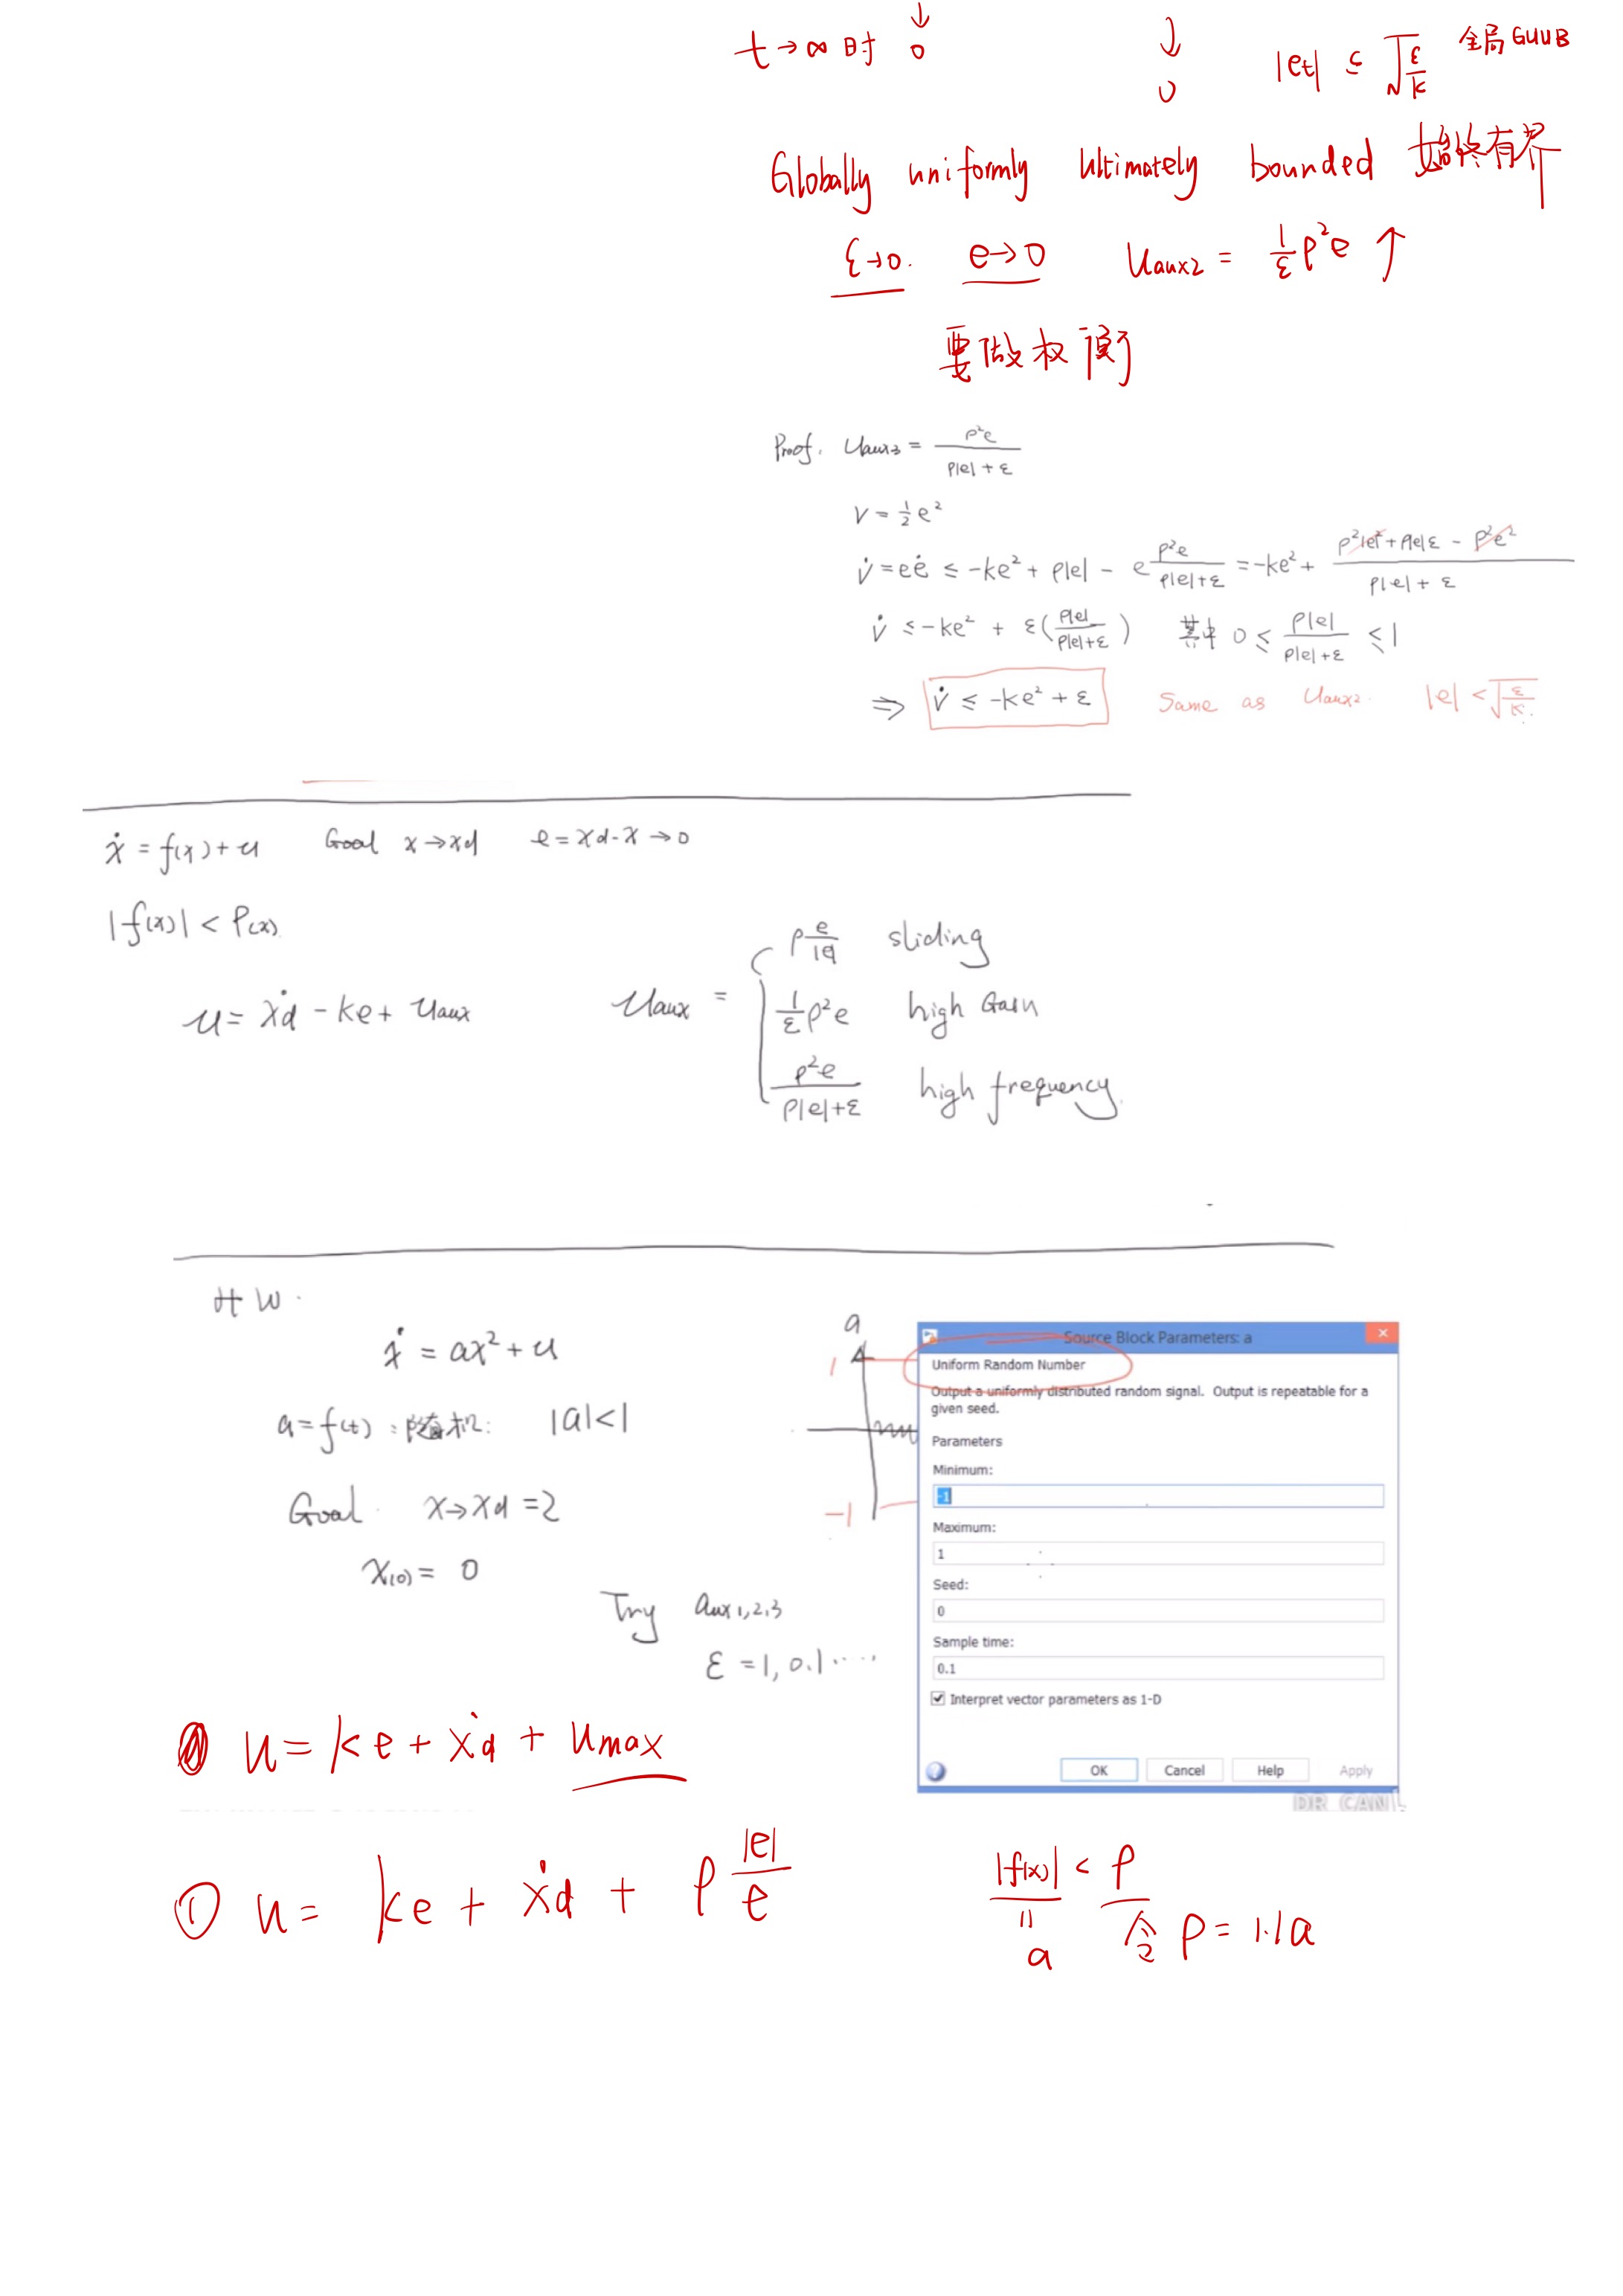 ↓ ↓
t→∞时 0 0 |et| ≤ √(ε/k) 全局GUUB
Globally uniformly ultimately bounded 始终有界
ε→0. e→0 Uaux2 = 1/ε ρ²e ↑
要做权衡
Proof. Uaux3 = ρ²e / (ρ|e| + ε)
V = 1/2 e²
V̇ = eė ≤ -ke² + ρ|e| - e ρ²e/(ρ|e|+ε) = -ke² + (ρ²|e|² + ρ|e|ε - ρ²e²)/(ρ|e| + ε)
V̇ ≤ -ke² + ε(ρ|e|/(ρ|e|+ε)) 其中 0 ≤ ρ|e|/(ρ|e|+ε) ≤ 1
⇒ V̇ ≤ -ke² + ε Same as Uaux2. |e| < √(ε/k).
ẋ = f(x) + u Goal x→xd e = xd - x → 0
|f(x)| < ρ(x)
u = ẋd - ke + Uaux
Uaux = { ρ e/|e| sliding
1/ε ρ²e high Gain
ρ²e/(ρ|e|+ε) high frequency.
HW.
ẋ = ax² + u
a = f(t) : 随机: |a|<1
Goal. x→xd = 2
x(0) = 0
Try aux1,2,3
ε = 1, 0.1 .....
a
1
-1
Source Block Parameters: a
Uniform Random Number
Output a uniformly distributed random signal. Output is repeatable for a
given seed.
Parameters
Minimum:
-1
Maximum:
1
Seed:
0
Sample time:
0.1
Interpret vector parameters as 1-D
OK Cancel Help Apply
DR_CAN
u = ke + ẋd + umax
① u = ke + ẋd + ρ |e|/e
|f(x)| < ρ
=
a 令 ρ = 1.1a